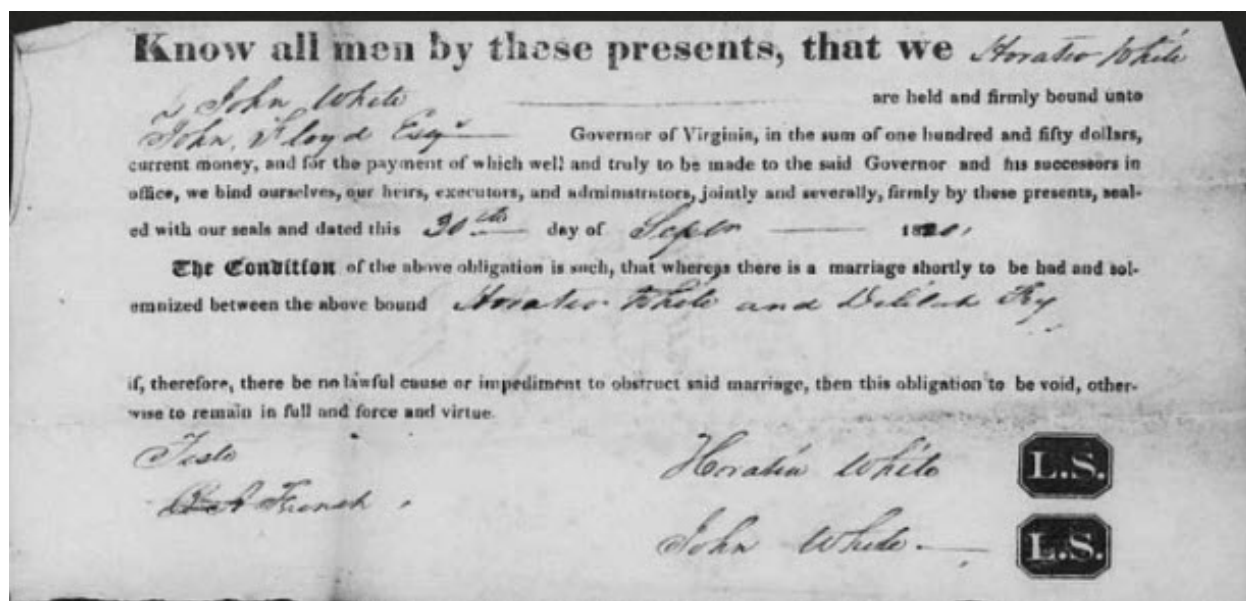 Know all men by these presents, that we Horatio White
& John White are held and firmly bound unto
John Floyd Esqr Governor of Virginia, in the sum of one hundred and fifty dollars,
current money, and for the payment of which well and truly to be made to the said Governor and his successors in
office, we bind ourselves, our heirs, executors, and administrators, jointly and severally, firmly by these presents, seal-
ed with our seals and dated this 30th day of Septr
The Condition of the above obligation is such, that whereas there is a marriage shortly to be had and sol-
emnized between the above bound Horatio White and Delilah Fry
if, therefore, there be no lawful cause or impediment to obstruct said marriage, then this obligation to be void, other-
wise to remain in full and force and virtue.
Teste Horatio White L.S.
French John White L.S.